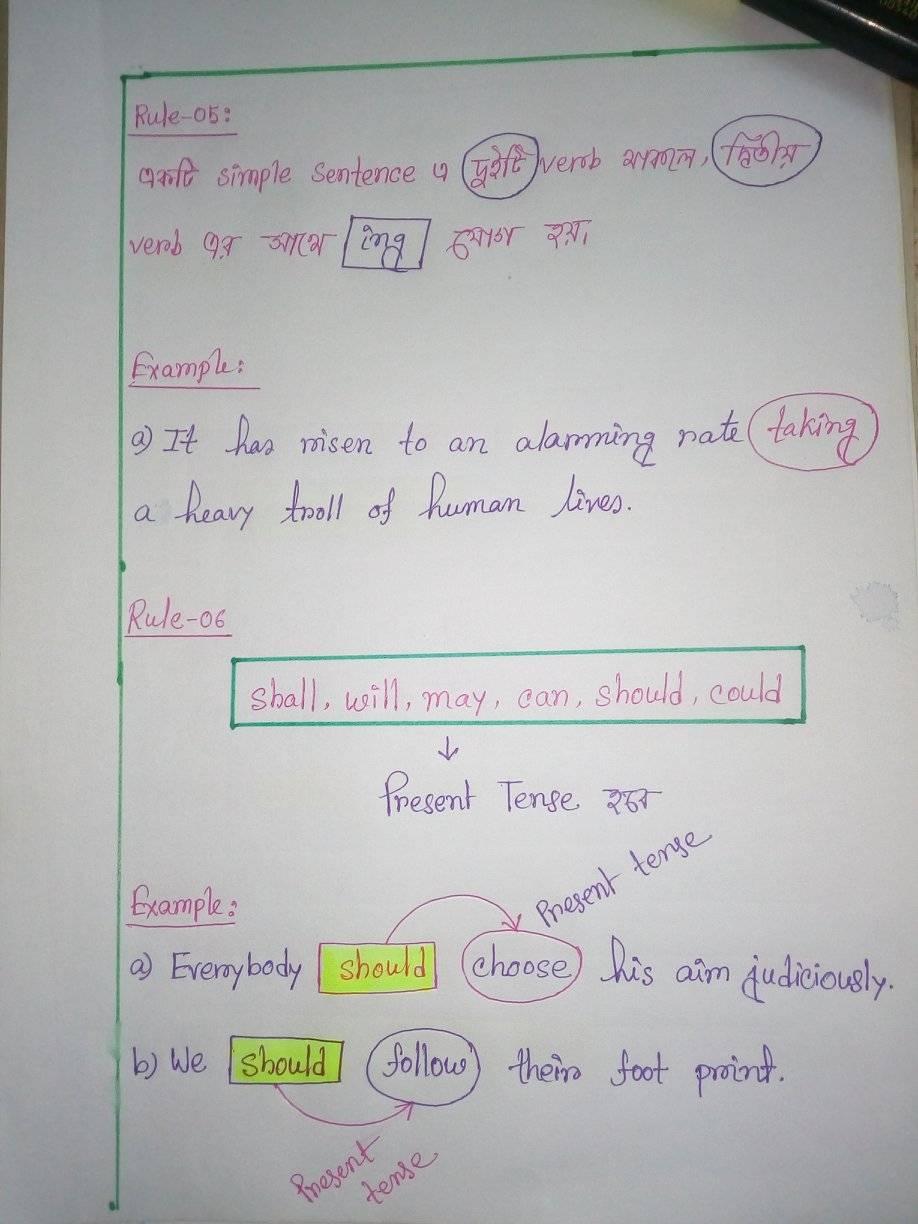 Rule-05:
একটি simple sentence এ দুইটি verb থাকলে, দ্বিতীয়
verb এর সাথে ing যোগ হয়।
Example:
a) It has risen to an alarming rate taking
a heavy troll of human lives.
Rule-06
shall, will, may, can, should, could
↓
Present Tense হবে
Example:
Present tense
a) Everybody should choose his aim judiciously.
b) We should follow their foot print.
Present
tense